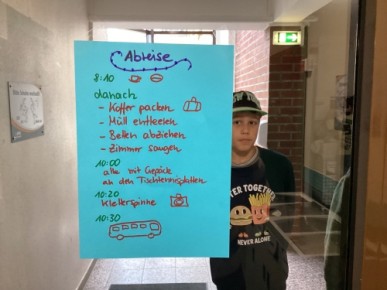 Abreise
8:10
danach
- Koffer packen
- Müll entleeren
- Betten abziehen
- Zimmer saugen
10:00
alle mit Gepäck
an den Tischtennisplatten
10:20
Kletterspinne
10:30
TER TOGETHER
NEVER ALONE